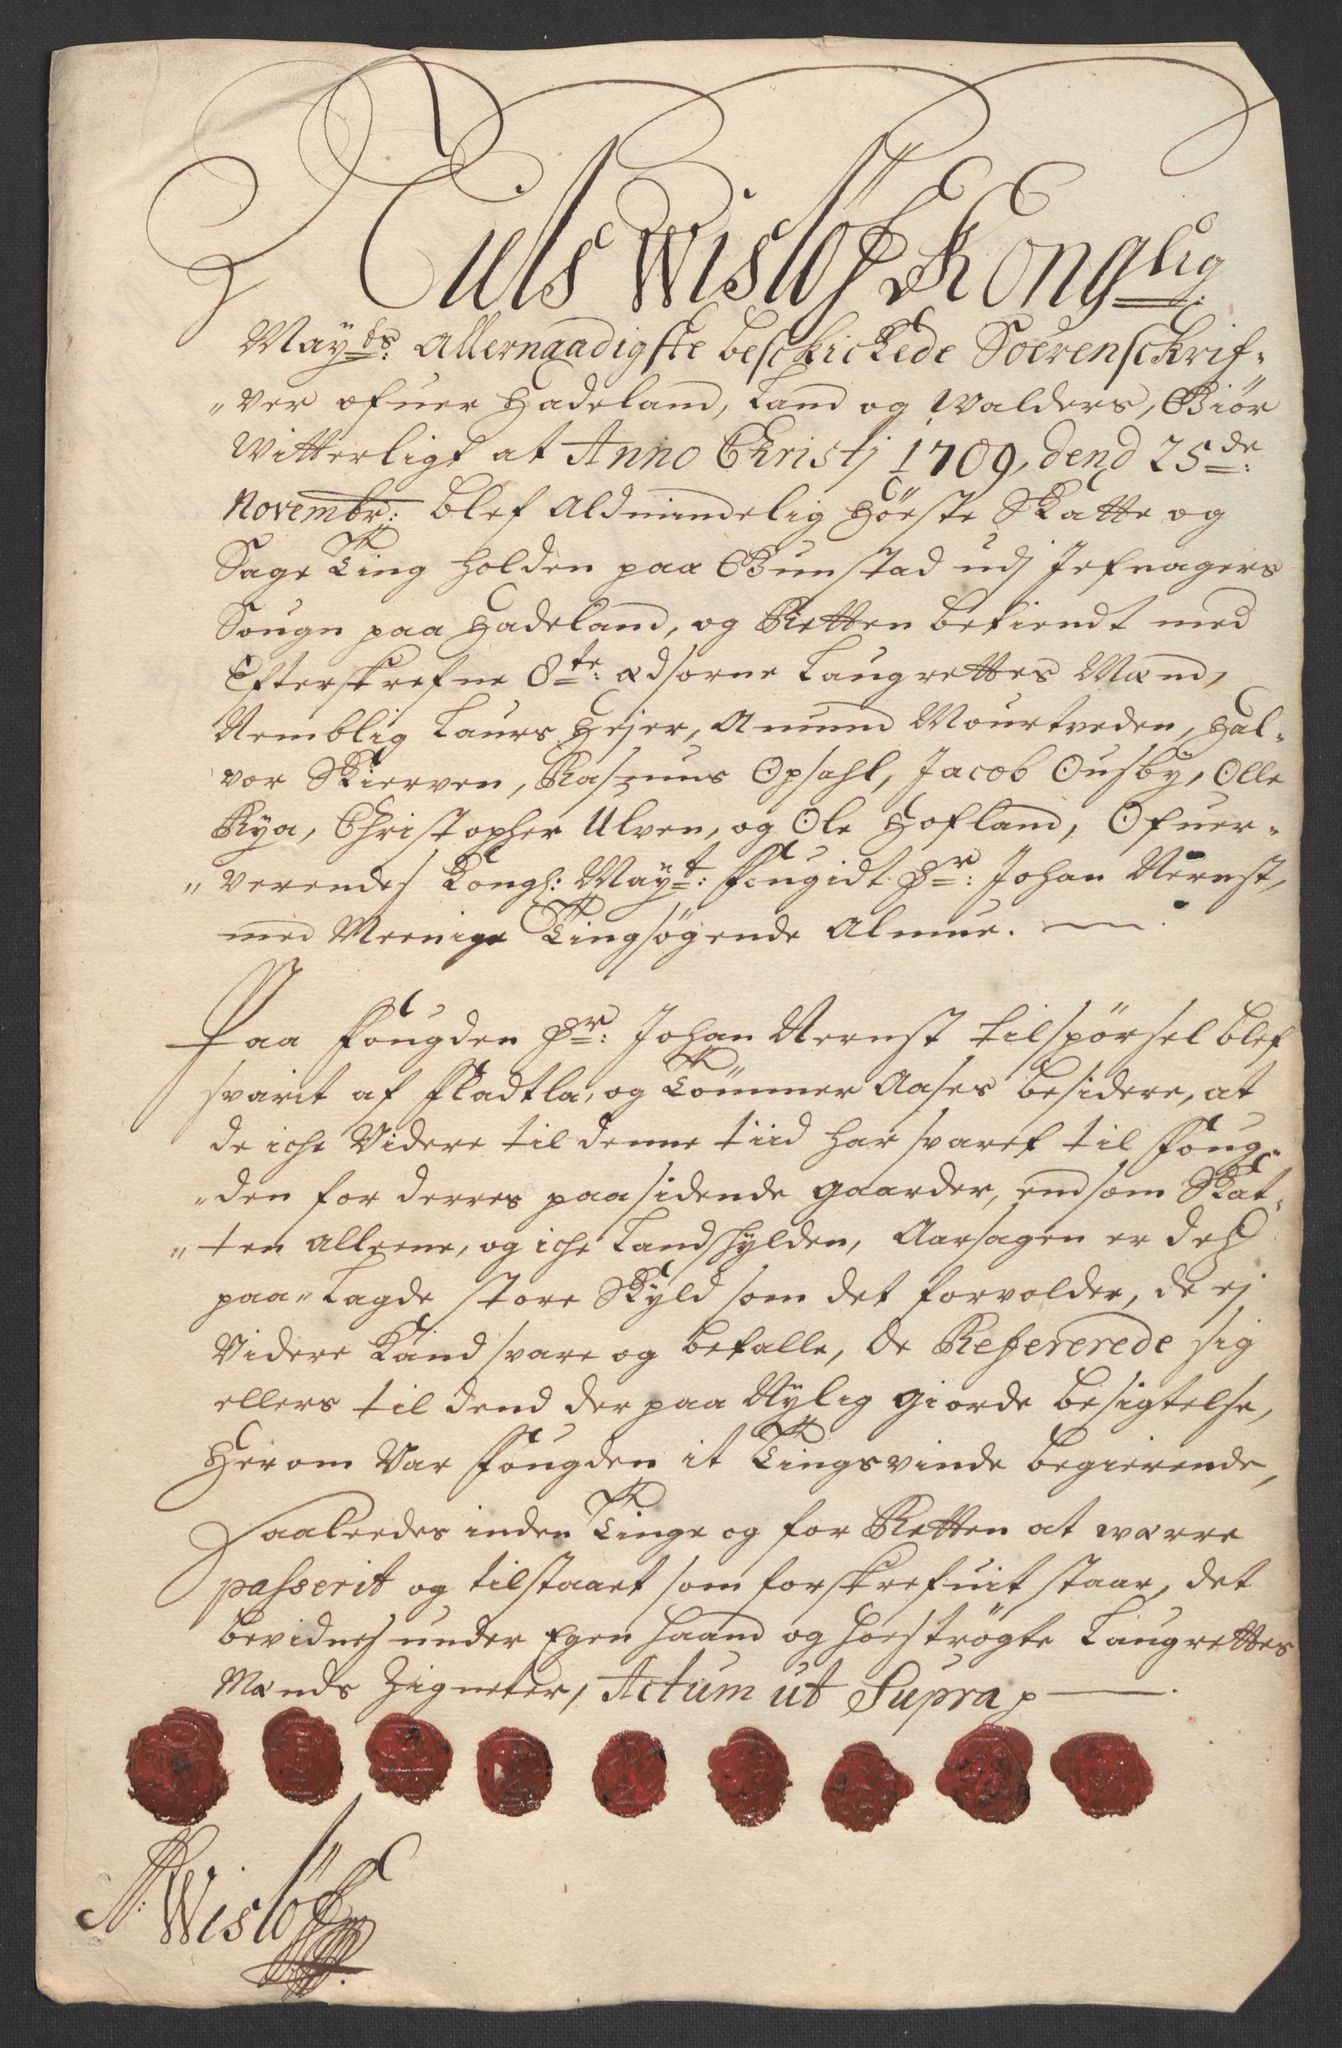 Niels Wislöff Kong:lig
May:ds: Allernaadigste beschickede Soerenschrif-
"ver ofuer Hadeland, Land og Walders, Giör
Witterligt at Anno Christj 1709, dend 25de:
Novembr: blef Aldmindelig Höste Skatte og
Sage Ting holden paa Bunstad udj Jefnagers
Sougn paa Hadeland, og Retten bekiendt med
Efterskrefne 8te: Edsorne Laugrettes Mænd,
Nemblig Laurs Hejer, Amund Mourtveden, Hal-
vor Skierven, Rasmus Opsahl, Jacob Ousby, Olle
Rya, Christopher Ulven, og Ole Hofland, Ofuer-
"verendes Kongl: May:t: Fougidt Hr: Johan Nernst,
med Meenige Tingsøgende Almue.
Paa Fougden Hr: Johan Nernst tilspörsel blef
svarit af Fladtla, og Tömmer Aases besidere, at
de iche Videre til denne tiid har svaret til Foug-
"den for derres paasidende gaarder, end som Skat-
"ten alleene, og iche Landschylden, Aarsagen er deß
paa-lagde store Skyld som det forvolder, de ej
Videre Kand svare og betalle, de Refererede sig
ellers til dend der paa Nylig giorde besigtelse,
Herom Var Fougden it Tingsvinde begierende,
Saaleedes inden Tinge og for Retten at werre
passerit og tilstaaet som forskrefuit staar, det
bevidnes under Egen haand og hoeströgte Laugrettes
Mænds Zigneter, Actum ut Supra
N: Wislöff